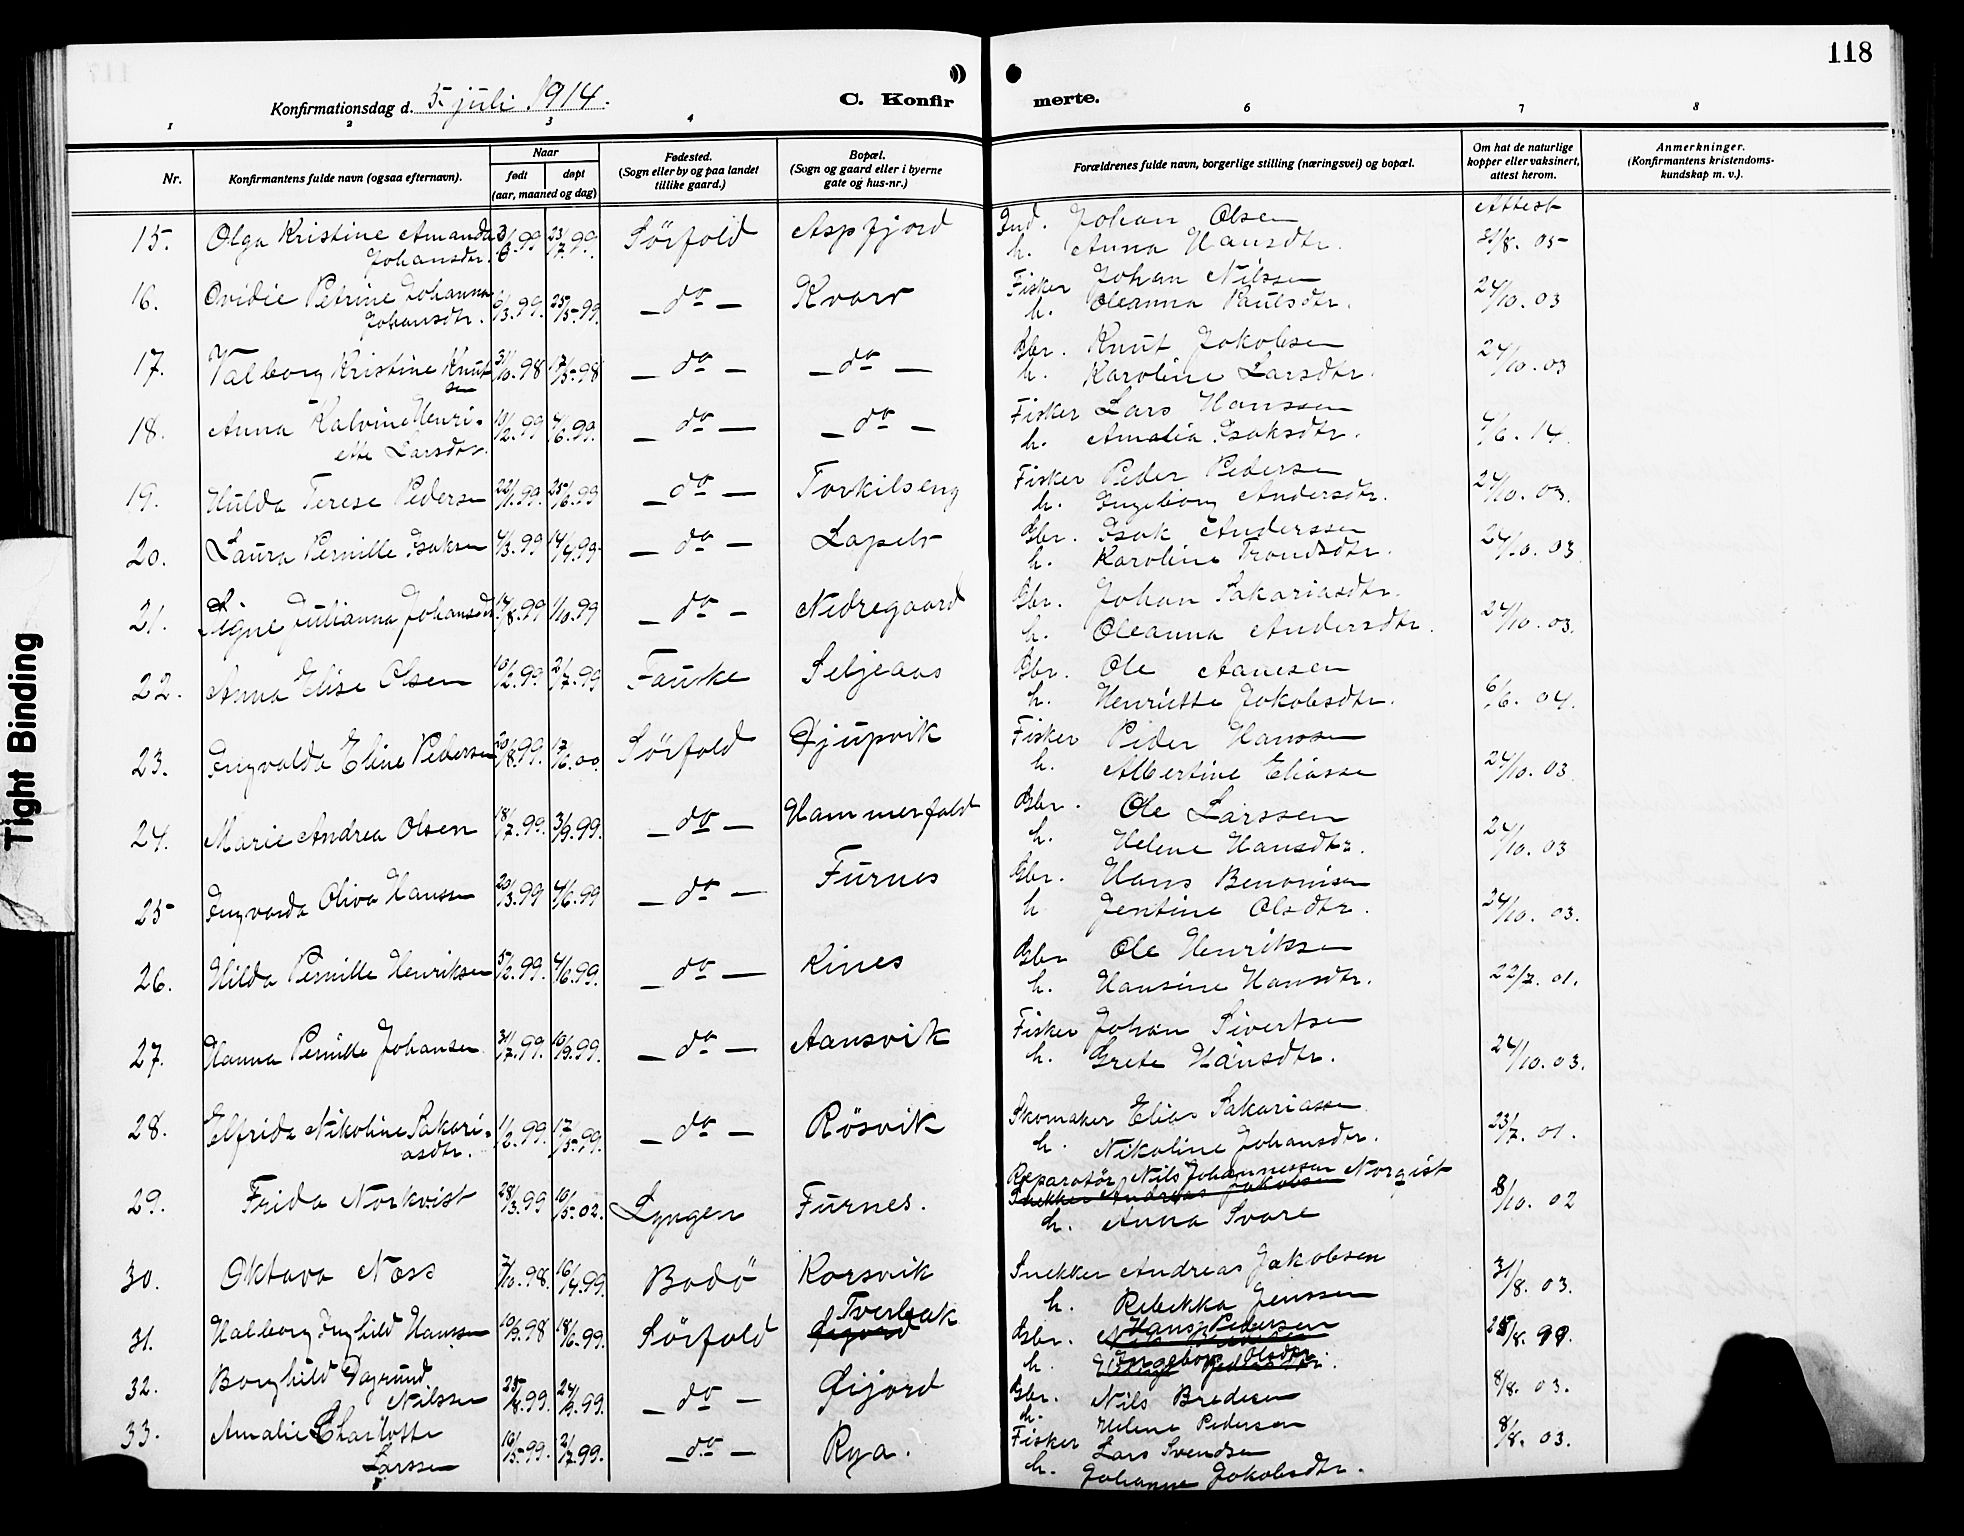 118
Konfirmationsdag d. 5. juli 1914.
C. Konfir merte.
1 2 3 4 6 7 8
Nr.
Konfirmantens fulde navn (ogsaa efternavn).
Naar
født døpt
(aar, maaned og dag)
Fødested.
(Sogn eller by og paa landet
tillike gaard.)
Bopæl.
(Sogn og gaard eller i byerne
gate og hus-nr.)
Forældrenes fulde navn, borgerlige stilling (næringsvei) og bopæl.
Om hat de naturlige
kopper eller vaksinert,
attest herom.
Anmerkninger.
(Konfirmantens kristendoms-
kundskap m. v.).
Attest
15. Olga Kristine Amanda 3/6.99 23/7.99. Sörfold Aspfjord Ind. Johan Olsen 31/8. 05
Johansdtr. h. Anna Hansdtr.
16. Ovidie Petrine Johanna 6/3.99. 25/5.99. – do – Kvarv Fisker Johan Nilssen 24/10. 03
Johansdtr. h. Oleanna Paulsdtr.
17. Valborg Kristine Knut 31/10.98 – do – – do – Gbr. Knut Jakobsen 24/10. 03
sen h. Karoline Larsdtr.
18. Anna Kalvine Henri- 4/6.99. – do – – do – Fisker Lars Hanssen 4/6. 14.
ette Larsdtr. h. Amalia Isaksdtr.
19. Hulda Terese Pedersen 22/1.99. 25/6.99 – do – Torkilseng Fisker Peder Pedersen 24/10. 03.
h. Ingeborg Andersdtr.
20. Laura Pernille Isaksen 4/3.99 14/4.99. – do – Lapelv Gbr. Isak Anderssen 24/10. 03
h. Karoline Trondsdtr.
21. Signe Julianna Johansdtr 1/10.99 – do – Nedregaard Gbr. Johan Sakariasdtr. 24/10. 03.
h. Oleanna Andersdtr.
22. Anna Elise Olsen 10/2.99 2/7.99 Fauske Seljeaas Gbr. Ole Aanesen 6/6. 04.
h. Henriette Jakobsdtr.
23. Ingvalda Eline Pedersen 20/8.99. 17/6.00. Sörfold Djupvik Fisker Peder Hanssen 24/10. 03
h. Albertine Eliassen
24. Marie Andrea Olsen 18/7.99. 3/9.99. – do – Hammerfald Gbr. Ole Larssen 24/10. 03
h. Helene Hansdtr.
25 Ingvarda Oliva Hansen 20/3.99 4/6.99 – do – Furnes Gbr. Hans Benonisen 24/10. 03.
h Jentine Olsdtr.
26. Hilda Pernille Henriksen 5/2.99. 4/6.99. – do – Rines Gbr Ole Henriksen 22/7. 01.
h. Hansine Hansdtr.
27. Hanna Pernille Johansen 31/7.99. 10/9.99. – do – Aansvik Fisker Johan Sivertsen 24/10. 03.
h. Grete Hansdtr.
28. Elfrida Nikoline Sakari- 1/2.99. 17/5.99. – do – Rösvik Skomaker Elias Sakariassen 23/7. 01.
asdtr. h. Nikoline Johansdtr.
Reparatör Nils Johannessen Norqist
29. Frida Norkvist 28/3.99 10/5.02. Lyngen Furnes. Snekker Andreas Jakobsen 8/10. 02
h. Anna Svare
30. Oktava Næss 7/10.98. 16/4.99. Bodö Korsvik Snekker Andreas Jakobsen 31/8. 03.
h. Rebekka Jenssen
31. Halborg Inghild Hanssen 10/9.98 18/6.99. Sörfold Tverbak Øijord Gbr. Hans Pedersen
h. Ingebor Olsdtr.
32. Borghild Dagrund 25/8.99. 24/9.99. – do – Øijord Gbr. Nils Bredesen 8/8. 03.
Nilssen h. Helene Pedersen
33. Amalie Charlotte 16/5.99. 2/7.99. – do – Rya. Fisker Lars Svendsen 8/8. 03.
Larssen h. Johanne Jakobsdtr.
Tight Binding